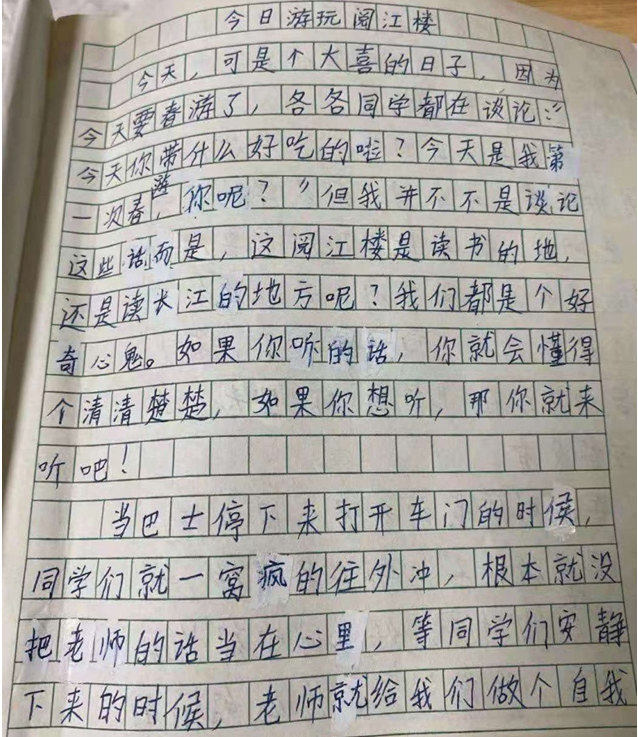 今日游玩阅江楼
今天，可是个大喜的日子，因为
今天要春游了，各各同学都在谈论：“
今天你带什么好吃的啦？今天是我第
一次春游，你呢？”但我并不不是谈论
这些话而是，这阅江楼是读书的地，
还是读长江的地方呢？我们都是个好
奇心鬼。如果你听的话，你就会懂得
个清清楚楚，如果你想听，那你就来
听吧！
当巴士停下来打开车门的时候，
同学们就一窝疯的往外冲，根本就没
把老师的话当在心里，等同学们安静
下来的时候，老师就给我们做个自我